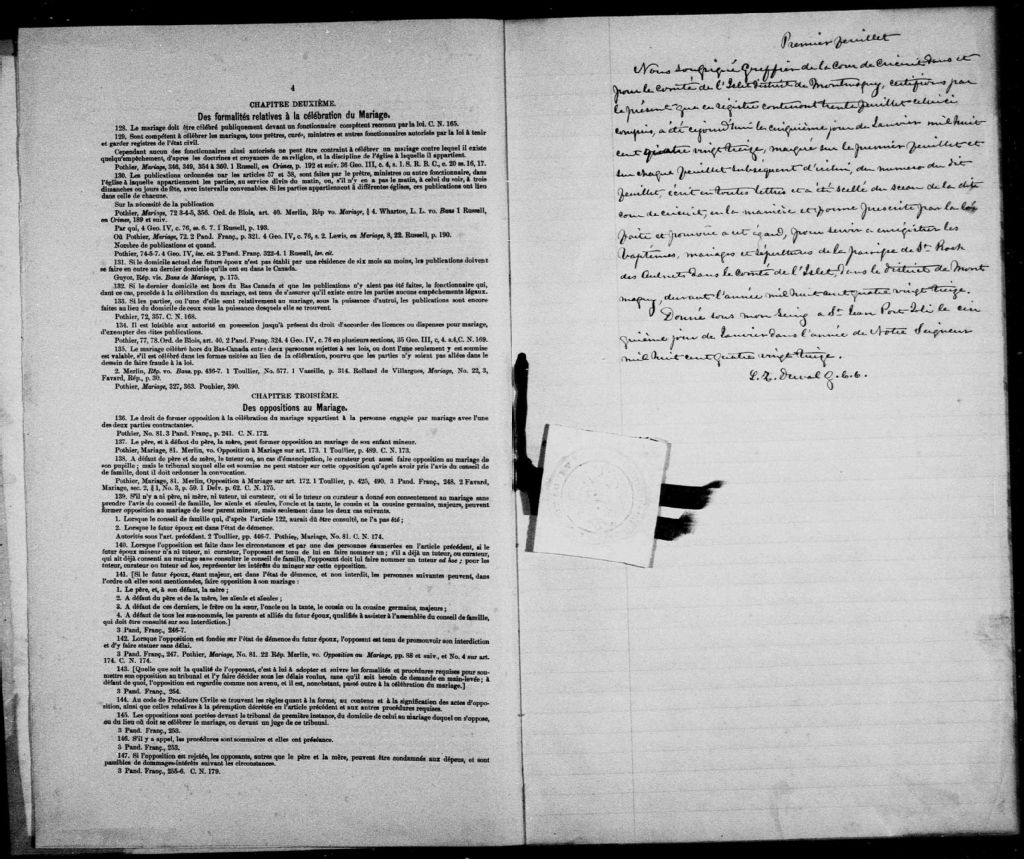 4
CHAPITRE DEUXIÈME.
Des formalités relatives à la célébration du Mariage.
128. Le mariage doit être célébré publiquement devant un fonctionnaire compétent reconnu par la loi. C. N. 165.
129. Sont compétent à célébrer les mariages, tous prêtres, curés, ministres et autres fonctionnaires autorisés par la loi à tenir
et garder registres de l'état civil.
Cependant aucun des fonctionnaires ainsi autorisés ne peut être contraint à célébrer un mariage contre lequel il existe
quelqu'empêchement, d'apres les doctrines et croyances de sa religion, et la discipline de l'église à laquelle il appartient.
Pothier, Mariage, 346, 349, 354 à 360. 1 Russell, on Crimes, p. 192 et suiv. 36 Geo. III, c. 4, s. 1. S. R. B. C., c. 20 ss. 16, 17.
130. Les publications ordonnées par les articles 57 et 58, sont faites par le prêtre, ministre ou autre fonctionnaire, dans
l'église à laquelle appartiennent les parties, au service divin du matin, ou, s'il n'y en a pas le matin, à celui du soir, à trois
dimanches ou jours de fête, avec intervalle convenables. Si les parties appartiennent à différentes églises, ces publications ont lieu
dans celle de chacune.
Sur la nécessité de la publication
Pothier, Mariage, 72 3-4-5, 356. Ord. de Blois, art. 40. Merlin, Rép vo. Mariage, § 4. Whartoe, L. L. vo. Bans 1 Russell,
on Crimes, 189 et suiv.
Par qui, 4 Geo. IV, c. 76, ss. 6. 7. 1 Russell, p. 193.
Où Pothier, Mariage, 72. 2 Pand. Franç., p. 321. 4 Geo. IV, c. 76, s. 2. Lewis, on Mariage, 8, 22. Russell, p. 190.
Nombre de publications et quand.
Pothier, 74-5-7. 4 Geo. IV, loc. cit. 2 Pand. Franç. 322-4. 1 Russell, loc. cit.
131. Si le domicile actuel des futurs époux n'est pas établi par une résidence de six mois au moins, les publications doivent
se faire en outre au dernier domicile qu'ils ont eu dans le Canada.
Guyot, Rép. vis. Bans de Mariage, p. 175.
132. Si le dernier domicile est hors du Bas Canada et que les publications n'y aient pas été faites, le fonctionnaire qui,
dans ce cas, procède à la célébration du mariage, est tenu de s'assurer qu'il existe entre les parties aucuns empêchements légaux.
133. Si les parties, ou l'une d'elle sont relativement au mariage, sous la puissance d'autrui, les publications sont encore
faites au lieu du domicile de ceux sous la puissance desquels elle se trouvent.
Pothier, 72, 357. C. N. 168.
134. Il est loisible aux autorité en possession jusqu'à présent du droit d'accorder des licences ou dispenses pour mariage,
d'exempter des dites publications.
Pothier, 77, 78. Ord. de Blois, art. 40. 2 Pand. Franç. 324. 4 Geo. IV, c. 76 en plusieurs sections, 35 Geo. III, c. 4. s. 4, C. N. 169.
135. Le mariage célébré hors du Bas-Canada entre deux personnes sujettes à ses lois, ou dont l'une seulement y est soumise
est valable, s'il est célébré dans les formes usitées au lieu de la célébration, pourvu que les parties n'y soient pas allées dans le
dessein de faire fraude à la loi.
2. Merlin, Rép. vo. Bans. pp. 456-7. 1 Toullier, No. 577. 1 Vazeille, p. 314. Rolland de Villargues, Mariage, No. 22, 3,
Favard, Rép., p. 30.
Pothier, Mariage, 327, 363. Pouhier, 390.
CHAPITRE TROISIÈME.
Des oppositions au Mariage.
136. Le droit de former opposition à la célébration du mariage appartient à la personne engagée par mariage avec l'une
des deux parties contractantes.
Pothier, No. 81. 3 Pand. Franç., p. 241. C. N. 172.
137. Le père, et à défaut du père, la mère, peut former opposition au mariage de son enfant mineur.
Pothier, Mariage, 81. Merlin, vo. Opposition à Mariage sur art. 173. 1 Toullier, p. 489. C. N. 173.
138. A défaut de père et de mère, le tuteur ou, au cas d'émancipation, le curateur peut aussi faire opposition au mariage de
son pupille; mais le tribunal auquel elle est soumise ne peut statuer sur cette opposition qu'après avoir pris l'avis du conseil de
de famille, dont il doit ordonner la convocation.
Pothier, Mariage, 81. Merlin, Opposition à Mariage sur art. 172. 1 Toullier, p. 425, 490. 3 Pand. Franç., 248. 2 Favard,
Mariage, sec. 2, § 1, No. 3, p. 59. 1 Delv. p. 62. C. N. 175.
139. S'il n'y a ni père, ni mère, ni tuteur, ni curateur, ou si le tuteur ou curateur a donné son consentement au mariage sans
prendre l'avis du conseil de famille, les aïeuls et aïeules, l'oncle et la tante, le cousin et la cousine germains, majeurs, peuvent
former opposition au mariage de leur parent mineur, mais seulement dans les deux cas suivants.
1. Lorsque le conseil de famille qui, d'après l'article 122, aurait dû être consulté, ne l'a pas été;
2. Lorsque le futur époux est dans l'état de démence.
Autorités sous l'art. précédent. 2 Toullier, pp. 446-7. Pothier, Mariage, No. 81. C. N. 174.
140. Lorsque l'opposition est faite dans les circonstances et par une des personnes énumérées en l'article précédent, si le
futur époux mineur n'a ni tuteur, ni curateur, l'opposant est tenu de lui en faire nommer un; s'il a déjà un tuteur, ou curateur,
qui ait déjà consenti au mariage sans consulter le conseil de famille, l'opposant doit lui faire nommer un tuteur ad hoc; pour les
tuteur, curateur ou tuteur ad hoc, représenter les intérêts du mineur sur cette opposition.
141. [Si le futur époux, étant majeur, est dans l'état de démence, et non interdit, les personnes suivantes peuvent, dans
l'ordre où elles sont mentionnées, faire opposition à son mariage:
1. Le père, et, à son défaut, la mère;
2. A défaut du père et de la mère, les aïeuls et aïeules;
3. A défaut de ces derniers, le frère ou la sœur, l'oncle ou la tante, le cousin ou la cousine germains, majeurs;
4. A défaut de tous les sus-nommés, les parents et alliés du futur époux, qualifiés à assister à l'assemblée du conseil de famille,
qui doit être consulté sur son interdiction.]
3 Pand. Franç., 246-7.
142. Lorsque l'opposition est fondée sur l'état de démence du futur époux, l'opposant est tenu de promouvoir son interdiction
et d'y faire statuer sans délai.
3 Pand. Franç., 247. Pothier, Mariage, No. 81. 22 Rép. Merlin, vo. Opposition au Mariage, pp. 88 et suiv., et No. 4 sur art.
174. C. N. 174.
143. [Quelle que soit la qualité de l'opposant, c'est à lui à adopter et suivre les formalités et procédures requises pour sou-
mettre son opposition au tribunal et l'y faire décider sous les délais voulus, sans qu'il soit besoin de demande en main-levée; à
défaut de quoi, l'opposition est regardée comme non avenu, et il est, nonobstant, passé outre à la célébration du mariage.]
3 Pand. Franç. 254.
144. Au code de Procédure Civile se trouvent les règles quant à la forme, au contenu et à la signification des actes d'oppo-
sition, ainsi que celles relatives à la péremption décrétée en l'article précédent et aux autres procédures requises.
145. Les oppositions sont portées devant le tribunal de première instance, du domicile de celui au mariage duquel on s'oppose,
ou du lieu où doit se célébrer le mariage, ou devant un juge de ce tribunal.
3 Pand. Franç., 253.
146. S'il y a appel, les procédures sont sommaires et elles ont préséance.
3 Pand. Franç., 253.
147. Si l'opposition est rejetée, les opposants, autres que le père et la mère, peuvent être condamnés aux dépens, et sont
passibles de dommages-intérêts suivant les circonstances.
3 Pand. Franç., 255-6. C. N. 179.
Premier feuillet
Nous soussigné Greffier de la Cour de Circuit dans et
pour le comté de l'Islet district de Montmagny, certifions par
le présent que ce registre contenant trente feuillets celui ci
compris, a été ce jourd'hui le cinquième jour de Janvier mil huit
cent quatre vingt treize, marqué sur le premier feuillet et
sur chaque feuillet subséquent d'icelui, du numéro du dit
feuillet, écrit en toutes lettres et a été scellé du sceau de la dite
cour de circuit, en la manière et forme prescrite par la loi
faite et pourvue à cet égard, pour servir à enregistrer les
baptêmes, mariages et sépultures de la paroisse de St. Roch
des Aulnets dans le Comté de l'Islet, dans le district de Mont
magny, durant l'année mil huit cent quatre vingt treize.
Donné sous mon seing à St. Jean Port Joli le cin
quième jour de Janvier dans l'année de Notre Seigneur
mil huit cent quatre vingt treize.
L. Z. Duval G. C. C.